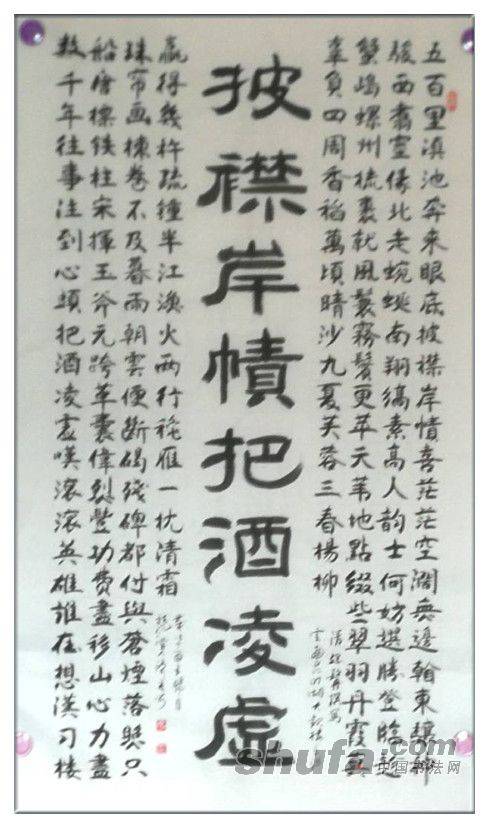 五百里滇池奔来眼底披襟岸幘喜茫茫空阔無邊翰東驤神
駿西翥靈儀北走蜿蜒南翔縞素高人韵士何妨選勝登臨趁
蟹嶼螺州梳裹就風鬟霧鬢更苹天苇地點綴些翠羽丹霞莫
辜負四周香稻萬頃晴沙九夏芙蓉三春楊柳
披襟岸幘把酒凌虛
数千年往事注到心頭把酒凌虚嘆滚滚英雄誰在想漢习楼
船唐標铁柱宋揮玉斧元跨革囊偉烈豐功費盡移山心力盡
珠帘画棟卷不及暮雨朝雲便断碣殘碑都付與蒼煙落照只
赢得幾杵疏鐘半江漁火兩行秋雁一枕清霜
shufa.com
中国书法网